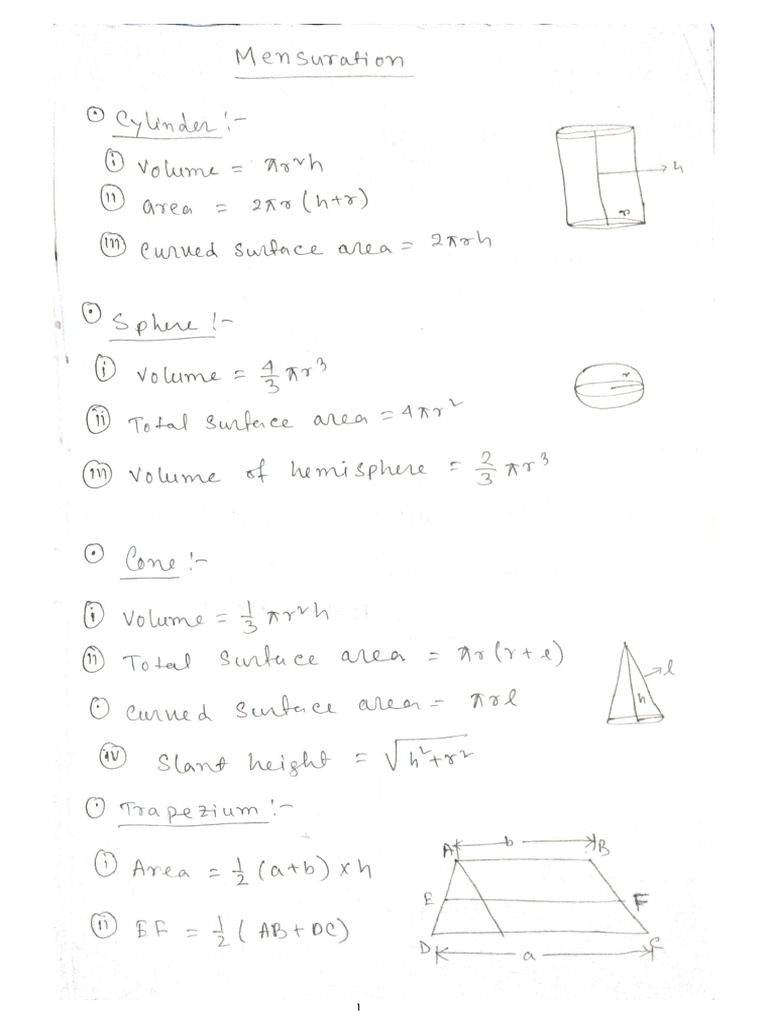 Mensuration
Cylinder :-
(i) Volume = πr²h
(ii) area = 2πr (h+r)
(iii) Curved surface area = 2πrh
h
r
Sphere :-
(i) Volume = 4/3 πr³
(ii) Total surface area = 4πr²
(iii) Volume of hemisphere = 2/3 πr³
r
Cone :-
(i) Volume = 1/3 πr²h
(ii) Total surface area = πr(r+l)
Curved surface area = πrl
(iv) Slant height = √h²+r²
l
h
Trapezium :-
(i) Area = 1/2 (a+b) × h
(ii) EF = 1/2 ( AB + DC)
A b B
E F
D a C
1